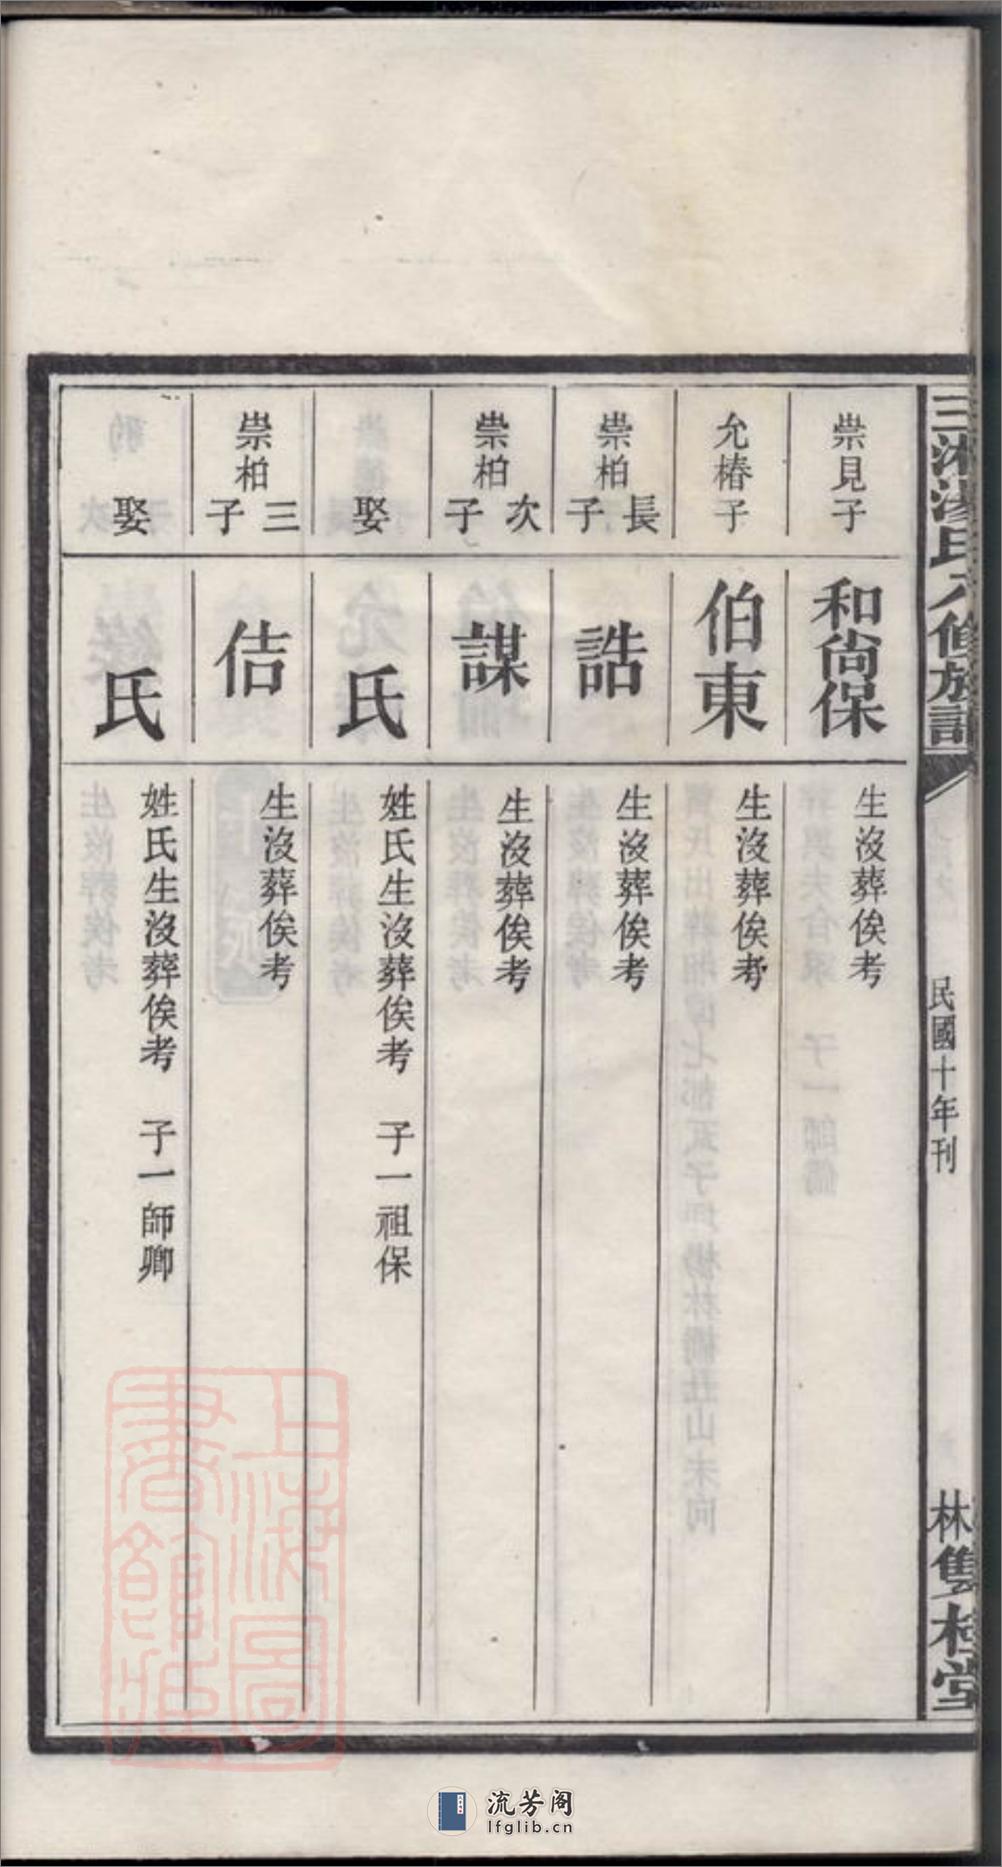 三湘湯氏六修族譜
民國十年刊
林雙桂堂
崇見子
和尚保
生沒葬俟考
允椿子
伯東
生沒葬俟考
崇柏長子
誥
生沒葬俟考
崇柏次子
謀
生沒葬俟考
娶
氏
姓氏生沒葬俟考 子一祖保
崇柏三子
佶
生沒葬俟考
娶
氏
姓氏生沒葬俟考 子一師卿
上海圖書館藏
流芳阁
lfglib.cn